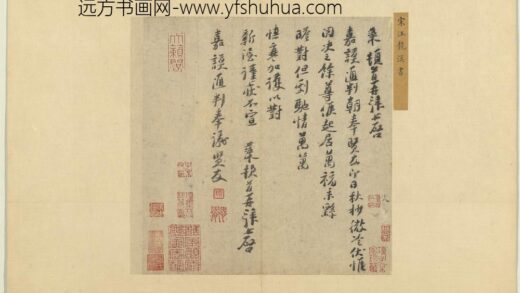 远方书画网-www.yfshuhua.com
宋汪龍溪書
藻頓首再拜上啓
嘉謨通判朝奉賢友即日秋杪微冷伏惟
之餘尊候起居萬福未繇
晤對但劇馳情萬萬
慎 加護以對
新渥謹 不宣 藻頓首再拜上啓
嘉謨通判奉議賢友